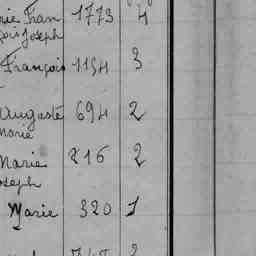 rie Fran 1773 4
çois Joseph
François 1154 3
Auguste 694 2
Marie
Marie 216 2
oseph
Marie 320 1